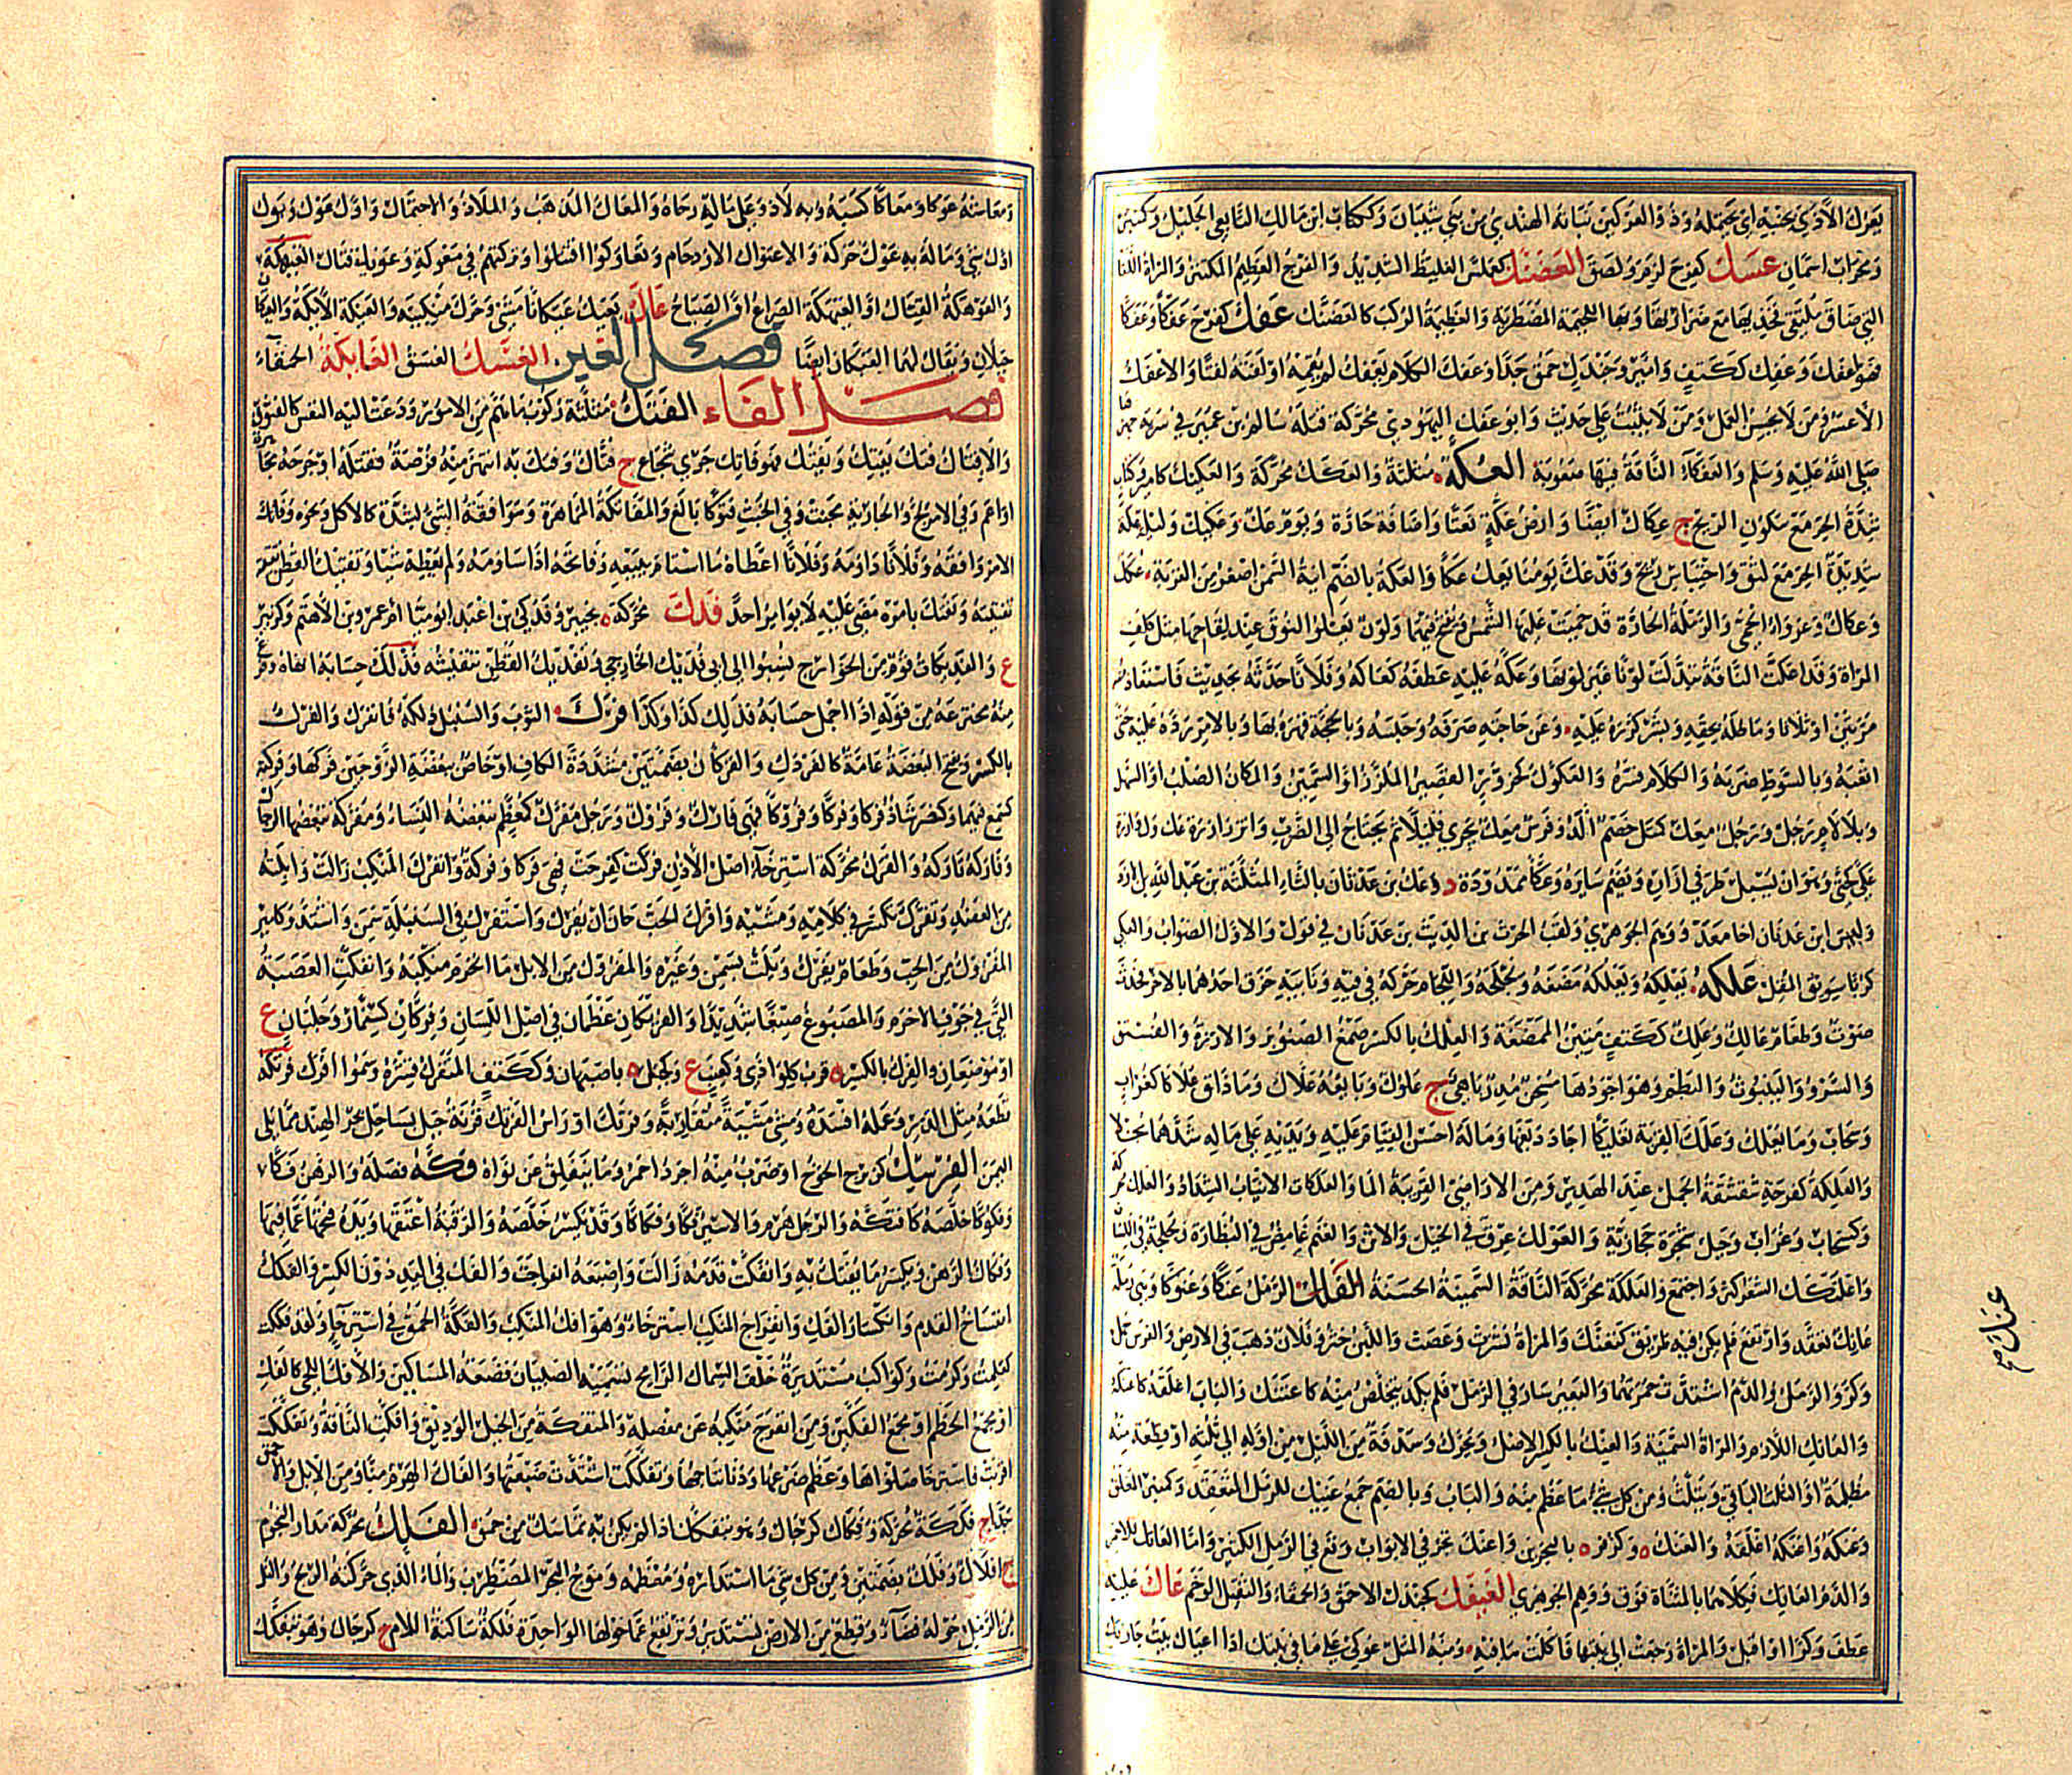 يعرك الأذى بجنبه اي يحتمله وذو العركين نباتة الهندي من بني شيبان وككتاب ابن مالك التابعي الجليل وكمنبر
ومحراب اسمان عسك كفرح لزم ولصق العضنك كعملس الغليظ الشديد والفرج العظيم المكتنز والمرأة اللفاء
التي ضاق ملتقى فخذيها مع ترارتها وبهاء اللحيمة المضطربة والعظيمة الركب كالعضنك عفك كفرح عفكا وعفكا
فهو اعفك وعفك ككتف وامير وجندل حمق جدا وعفك الكلام يعفك لم يقمه او لفته لفتا والاعفك
الأعسر ومن لا يحسن العمل ومن لا يثبت على حديث وابو عفك اليهودي محركة قتله سالم بن عمير في سرية
صلى الله عليه وسلم والعفكاء الناقة فيها صعوبة العكة مثلثة والعكك محركة والعكيك كامير وكتاب
شدة الحر مع سكون الريح ج عكاك ايضا وارض عكة نعتا واضافة حارة ويوم عك وعكيك وليلة عكة
شديدة الحر مع لثق واحتباس ريح وقد عك يومنا يعك عكا والعكة بالضم آنية السمن اصغر من القربة عكك
وعكاك وعرواء الحمى والرملة الحارة قد حميت عليها الشمس وتفتح فيهما ولون تعلو النوق عند لقاحها مثل كلف
المرأة وقد اعكت الناقة تبدلت لونا غير لونها وعكه عليه عطفه كعاكه وفلانا حدثه بحديث فاستعاده
مرتين او ثلاثا وماطله بحقه وبشر كرره عليه وعن حاجته صرفه وحبسه وبالحجة قهره بها وبالامر رده عليه حتى
اتعبه وبالسوط ضربه والكلام فسره والعكوك كحزور القصير الملزز او السمين والمكان الصلب او السهل
وبلا لام رجل ورجل معك كمتل خصم الد وفرس معك يجري قليلا ثم يحتاج الى الضرب وائتزر ازرة عك وك وازرة
عكى حكى وهو ان يسبل طرفي ازاره ويضم سايره وعكا ممدودة د وعك بن عدثان بالثاء المثلثة بن عبد الله بن الازد
وليس ابن عدنان اخا معد ووهم الجوهري ولقب الحرث بن الديث بن عدنان في قول والاول الصواب والعكى
كربا سويق المقل علكه يعلكه ويعلكه مضغه ولجلجه واللجام حركه في فيه ونابيه حرق احدهما بالآخر فحدث
صوت وطعام عالك وعلك ككتف متين الممضغة والعلك بالكسر صمغ الصنوبر والارزة والفستق
والسرو والينبوت والبطم وهو اجودها مسخن مدر باهي ج علوك وبايعه علاك وما ذاق علاكا كغراب
وسحاب وما يعلك وعلك القربة تعليكا اجاد دبغها وماله احسن القيام عليه ويديه على ماله شدهما بخلا
والعلكة كفرحة شقشقة الجمل عند الهدير ومن الاراضي القريبة الماء والعلكات الانياب الشداد والعلك محركة
وكسحاب وغراب وجبل شجرة حجازية والعولك عرق في الخيل والاتن والغنم غامض في البظارة ولجلجة في اللسان
واعلنكك الشعر كثر واجتمع والعلكة محركة الناقة السمينة الحسنة العنك الرمل عنكا وعنوكا وهي رملة
عانك تعقد وارتفع فلم يكن فيه طريق كتعنك والمرأة نشزت وعصت واللبن خثر وفلان ذهب في الارض والفرس حمل
وكر والرمل والدم اشتدت حمرتهما والبعير سار في الرمل فلم يكد يتخلص منه كاعتنك والباب اغلقه كاعنكه
والعانك اللازم والمرأة السمينة والعنك بالكسر الاصل ويحرك وسدفة من الليل من اوله الى ثلثه او قطعة منه
مظلمة او الثلث الباقي ويثلث ومن كل شيء ما عظم منه والباب وبالضم جمع عنيك للرمل المتعقد وكمنبر الغلق
وعنكه واعنكه اغلقه والعنك ه وكزفر ه بالبحرين واعنك تجر في الابواب ووقع في الرمل الكثير واما العاتك للاحمر
والدم العاتك فكلاهما بالمثناة فوق ووهم الجوهري العيفك كجندل الاحمق والحمقاء والثقيل الوخم عاك عليه
عطف وكر او اقبل والمرأة رجعت الى بيتها فاكلت ما فيه ومنه المثل عوكي على ما في بيتك اذا اعياك بيت جارتك
عنك صح
ومعاشه عوكا ومعاكا كسبه وبه لاذ وعلى ماله رجاه والمعاك المذهب والملاذ والاحتمال واول عوك وبوك
اول شيء وماله به عوك حركة والاعتواك الازدحام وتعاوكوا اقتتلوا وتركتهم في معوكة وعويكة قتال العيهكة
والعوهكة القتال او العيهكة الصراع او الصياح عاك يعيك عيكانا مشى وحرك منكبيه والعيكة الأيكة والعيكان
جبلان ويقال لهما العيكان ايضا فصل الغين الغسك الغسق الغايكة الحمقاء
فصل الفاء الفتك مثلثة ركوب ما هم من الامور ودعت اليه النفس كالفتوك
والافتاك فتك يفتك ويفتك فهو فاتك جري شجاع ج فتاك وفتك به انتهز منه فرصة فقتله او جرحه مجاهرة
او اعم وفي الامر لج والجارية مجنت وفي الخبث فتوكا بالغ والمفاتكة المماهرة ومواقعة الشيء بشدة كالاكل ونحوه وفاتك
الامر واقعه وفلانا داومه وفلانا اعطاه ما استام ببيعه وفاتحه اذا ساومه ولم يعطه شيئا وتفتيك القطن نفشه
وتفتك بامره مضى عليه لا يوامر احدا فدك محركة ه بخيبر وفدكي بن اعبد ابو ميا ام عمرو بن الاهتم وكزبير
ع والفديكات قوم من الخوارج نسبوا الى ابي فديك الخارجي وتفديك القطن تنفيشه فذلك حسابه انهاه وفرغ
منه مخترعة من قوله اذا اجمل حسابه فذلك كذا وكذا فرك الثوب والسنبل دلكه فانفرك والفرك
بالكسر ويفتح البغضة عامة كالفروك والفركان بضمتين مشددة الكاف او خاص ببغضة الزوجين فركها وفركته
كسمع فيهما وكنصر شاذ فركا وفركا وفروكا فهي فارك وفروك ورجل مفرك كمعظم تبغضه النساء ومفركة يبغضها الرجال
وفاركه تاركه والفرك محركة استرخاء اصل الأذن فركت كفرحت فهي فركاء وفركة وانفرك المنكب زالت وابلته
من العضد وتفرك تكسر في كلامه ومشيه وافرك الحب حان ان يفرك واستفرك في السنبلة سمن واشتد وكامير
المفروك من الحب وطعام يفرك ويلت بسمن وغيره والمفروك من الابل ما انخرم منكبه وانفكت العصبة
التي في جوف الاخرم والمصبوغ صبغا شديدا والفريكان عظمان في اصل اللسان وفركان كسنمار وجلبان ع
او موضعان والفرك بالكسر ه قرب كلواذى وكهجف ع وكجبل ه باصبهان وككتف المتفرك قشره وسموا افرك فرتكه
قطعه مثل الذر وعمله افسده ومشى مشية متقاربة وفرتك او راس الفرتك قرنة جبل بساحل بحر الهند مما يلي
اليمن الفرسك كزبرج الخوخ او ضرب منه اجرد احمر وما ينفلق عن نواه فكه فصله والرهن فكا
وفكوكا خلصه كافتكه والرجل هرم والاسير فكا وفكاكا وقد يكسر خلصه والرقبة اعتقها ويده فتحها عما فيها
وفكاك الرهن ويكسر ما يفتك به وانفكت قدمه زالت واصبعه انفرجت والفك في اليد دون الكسر والفكك
انفساخ القدم وانكسار الفك وانفراج المنكب استرخاء وهو افك المنكب والفكة الحمق في استرخاء ولقد فككت
كعلمت وكرمت وكواكب مستديرة خلف السماك الرامح تسميه الصبيان قصعة المساكين والافك اللحي كالفك
او مجمع الخطم او مجمع الفكين ومن انفرج منكبه عن مفصله والمتفكة من الخيل الوديق وافكت الناقة وتفككت
اقربت فاسترخى صلواها وعظم ضرعها ودنا نتاجها وتفككت اشتدت ضبعتها والفاك الهرم منا ومن الابل والاحمق
جدا ج فككة محركة وفكاك كرجال وهو يتفكك اذا لم يكن به تماسك من حمق الفلك محركة مدار النجوم
ج افلاك وفلك بضمتين ومن كل شيء مستداره ومعظمه وموج البحر المضطرب والماء الذي حركته الريح والتل
من الرمل حوله فضاء وقطع من الارض تستدير وترتفع عما حولها الواحدة فلكة ساكنة اللام ج كرجال وهو يتفكك